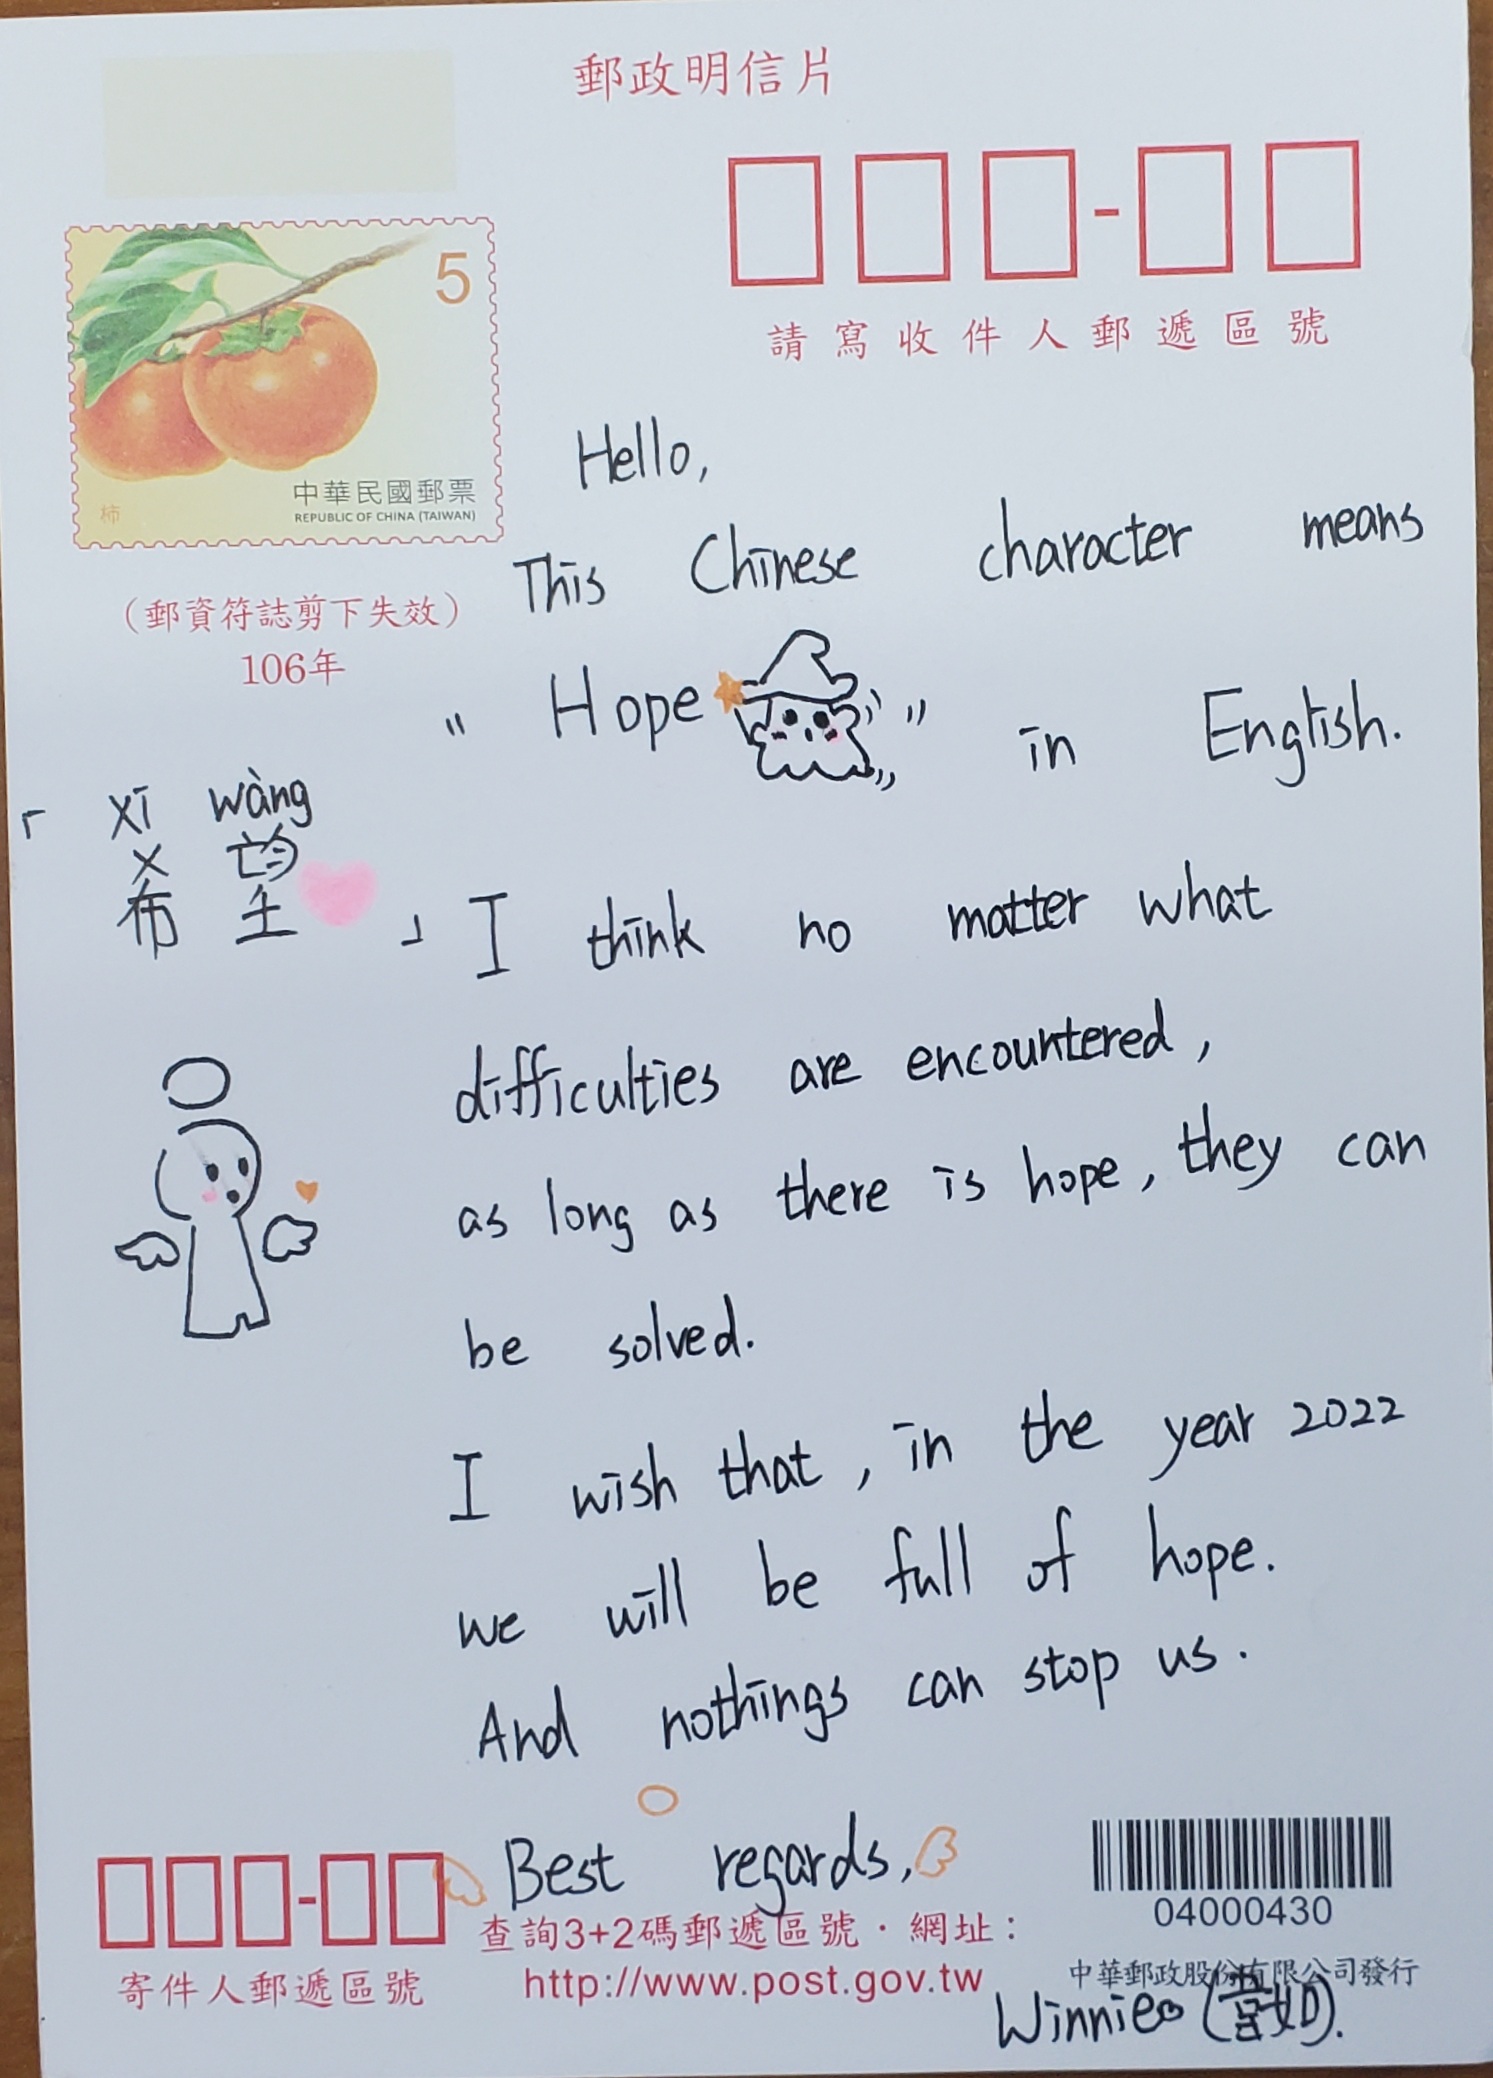 郵政明信片
請寫收件人郵遞區號
5
中華民國郵票
REPUBLIC OF CHINA (TAIWAN)
柿
(郵資符誌剪下失效)
106年
Hello,
This Chinese character means
" Hope " in English.
「 xī wàng
希望 」
I think no matter what
difficulties are encountered,
as long as there is hope, they can
be solved.
I wish that, in the year 2022
we will be full of hope.
And nothings can stop us.
Best regards,
04000430
查詢3+2碼郵遞區號·網址:
http://www.post.gov.tw
寄件人郵遞區號
中華郵政股份有限公司發行
Winnie